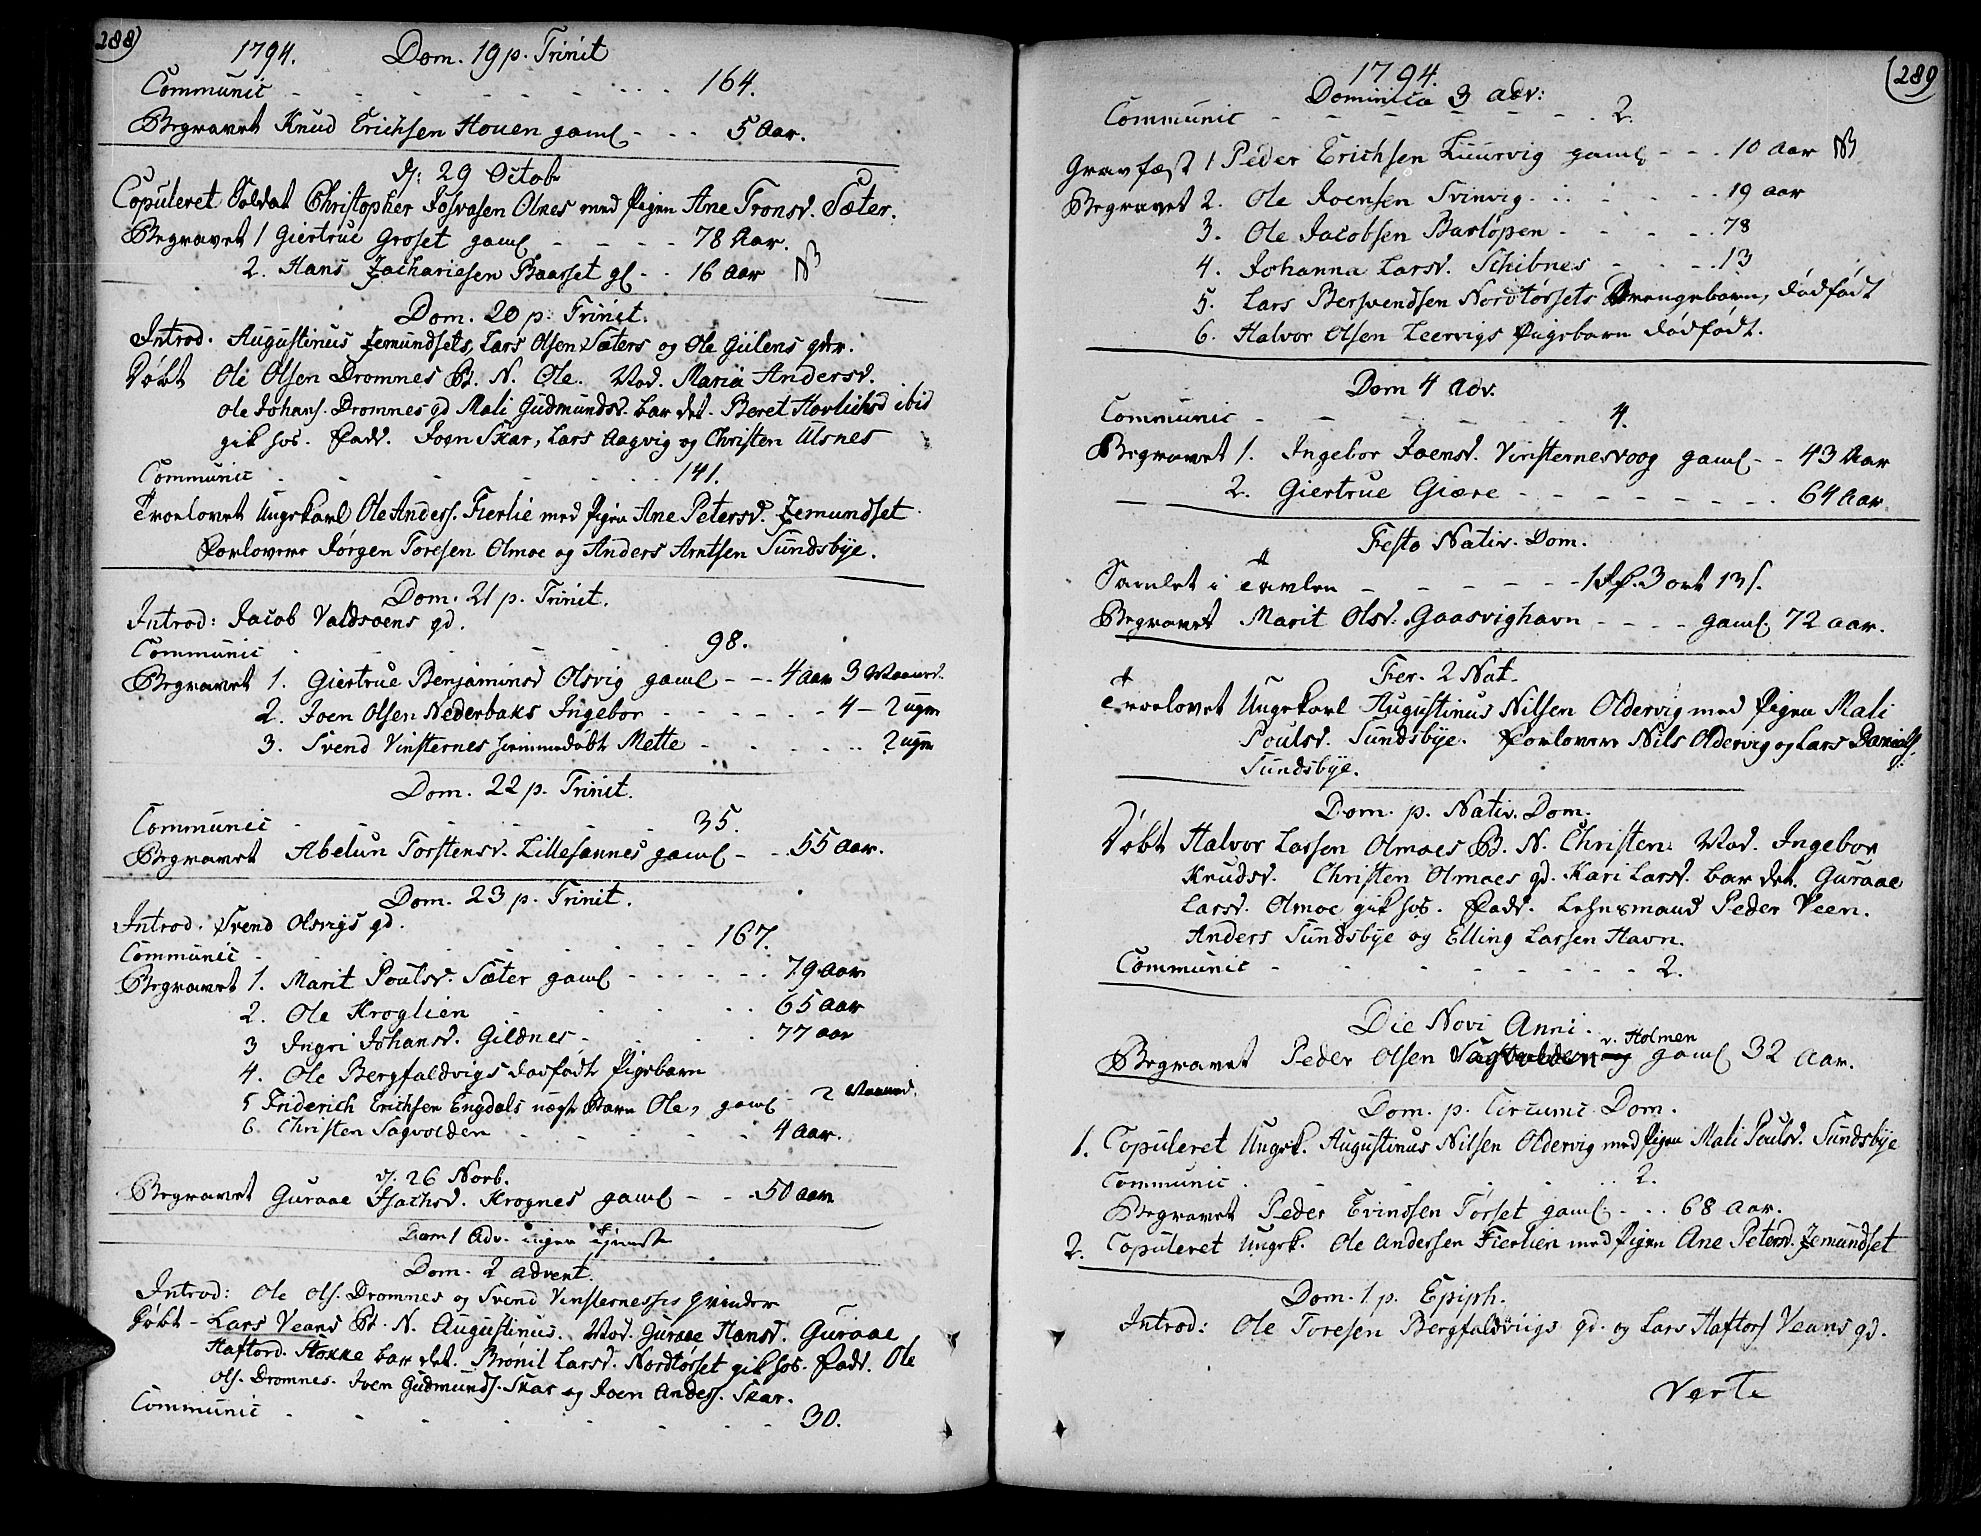 288)
1794. Dom. 19 p. Trinit
Communic - - - - - - - - 164.
Begravet Knud Erichsen Houen gaml - - - 5 Aar.
d: 29 Octob
Copuleret Soldat Christopher Josvasen Olnes med Pigen Ane Tronsd. Sæter.
Begravet 1 Giertrue Groset gaml - - - - 78 Aar.
2. Hans Zachariesen Baasset gl - - 16 Aar NB
Dom. 20 p. Trinit.
Introd. Augustinus Zemundsets, Lars Olsen Sæters og Ole Gülens qdr.
Døbt Ole Olsen Dromnes B. N. Ole. Mod. Maria Andersd.
Ole Johans. Dromnes qd Mali Gudmundsd. bar det. Beret Hovlichsd ibid
gik hos. Fadd. Joen Skar, Lars Aagvig og Christen Ulsnes
Communic - - - - - - - - 141.
Trolovet Ungekarl Ole Anders. Fierlie med Pigen Ane Petersd. Zemundset
Forlovere Jørgen Toresen Olmoe og Anders Arntsen Sundsbye.
Dom. 21 p. Trinit.
Introd: Jacob Valdsoens qd.
Communic - - - - - - - 98.
Begravet 1. Giertrue Benjaminsd Olsvig gaml - - - 4 Aar 3 Maaned.
2. Joen Olsen Nederbaks Ingebor - - - - - - 4 - 2 uger
3. Svend Vinsternes hiemmedøbt Mette - - - - - 2 uger
Dom. 22 p. Trinit.
Communic - - - - - - - 35.
Begravet Abelun Torstensd. Lillesannes gaml - - 55 Aar.
Dom. 23 p. Trinit.
Introd. Svend Olsvigs qd.
Communic - - - - - - - - 167.
Begravet 1. Marit Poulsd. Sæter gaml - - - - - - 79 Aar
2. Ole Kroglien - - - - - 65 Aar
3 Ingri Johansd. Gildnes - - - - 77 Aar
4. Ole Bergfaldvigs dødfødt Pigebarn
5 Friderich Erichsen Engdals uægte Barn Ole, gaml - 2 Maaned.
6. Christen Sagvolden - - - - - 4 Aar.
d. 26 Novb.
Begravet Guraae Isachsd. Krognes gaml - - - 50 Aar
Dom 1 Adv. ingen Tieneste
Dom. 2 Advent.
Introd: Ole Ols. Dromnes og Svend Vinsternesses qvinder
Døbt - Lars Veans B. N. Augustinus. Mod. Guraae Hansd. Guraae
Haftord. Stokke bar det. Brønil Larsd. Nordtørset gik hos. Fadd. Ole
Ols. Dromnes. Iven Gudmunds. Skar og Joen Anders. Skar.
Communic - - - - - - - - 30.
(289
1794.
Dominica 3 Adv:
Communic - - - - - - - - 2.
Gravfæst 1 Peder Erichsen Luurvig gaml - - - 10 Aar NB
Begravet 2. Ole Joensen Svinvig - - - - - 19 Aar
3. Ole Jacobsen Barløpen - - - - 78
4. Johanna Larsd. Schibnes - - - 13
5. Lars Bersvendsen Nordtørsets Drengebarn, dødfødt
6. Halvor Olsen Leervigs Pigebarn dødfødt.
Dom 4 Adv.
Communic - - - - - - 4.
Begravet 1. Ingebor Joensd. Vinsternesvoog gaml - - 43 Aar
2. Giertrue Giære - - - - - - - - 64 Aar
Festo Nativ. Dom.
Samlet i Tavlen - - - - - 1 Rd. 3 ort 13 s.
Begravet Marit Olsd. Gaasvighavn - - - - gaml. 72 Aar.
Fer. 2 Nat.
Trolovet Ungekarl Augustinus Nilsen Oldervig med Pigen Mali
Poulsd. Sundsbye. Forlovere Nils Oldervig og Lars Daniels.
Sundsbye.
Dom. p. Nativ. Dom.
Døbt Halvor Larsen Olmoes B. N. Christen. Mod. Ingebor
Knudsd. Christen Olmoes qd. Kari Larsd. bar det. Guraae
Larsd. Olmoe gik hos. Fadd. Lehnsmand Peder Veen.
Anders Sundsbye og Elling Larsen Havn.
Communic - - - - - - - - 2.
Die Novi Anni.
v. Holmen
Begravet Peder Olsen Sagvolden gaml 32 Aar.
Dom. p. Circumc. Dom.
1. Copuleret Ungk. Augustinus Nilsen Oldervig med Pigen Mali Poulsd. Sundsbye
Communic - - - - - - 2.
Begravet Peder Evindsen Tørset gaml. - - 68 Aar.
2. Copuleret Ungk. Ole Andersen Fierlien med Pigen Ane Petersd. Zemundset
Dom. 1 p. Epiph.
Introd: Ole Toresen Bergfaldviigs qd. og Lars Haftors Veans qd.
Verte